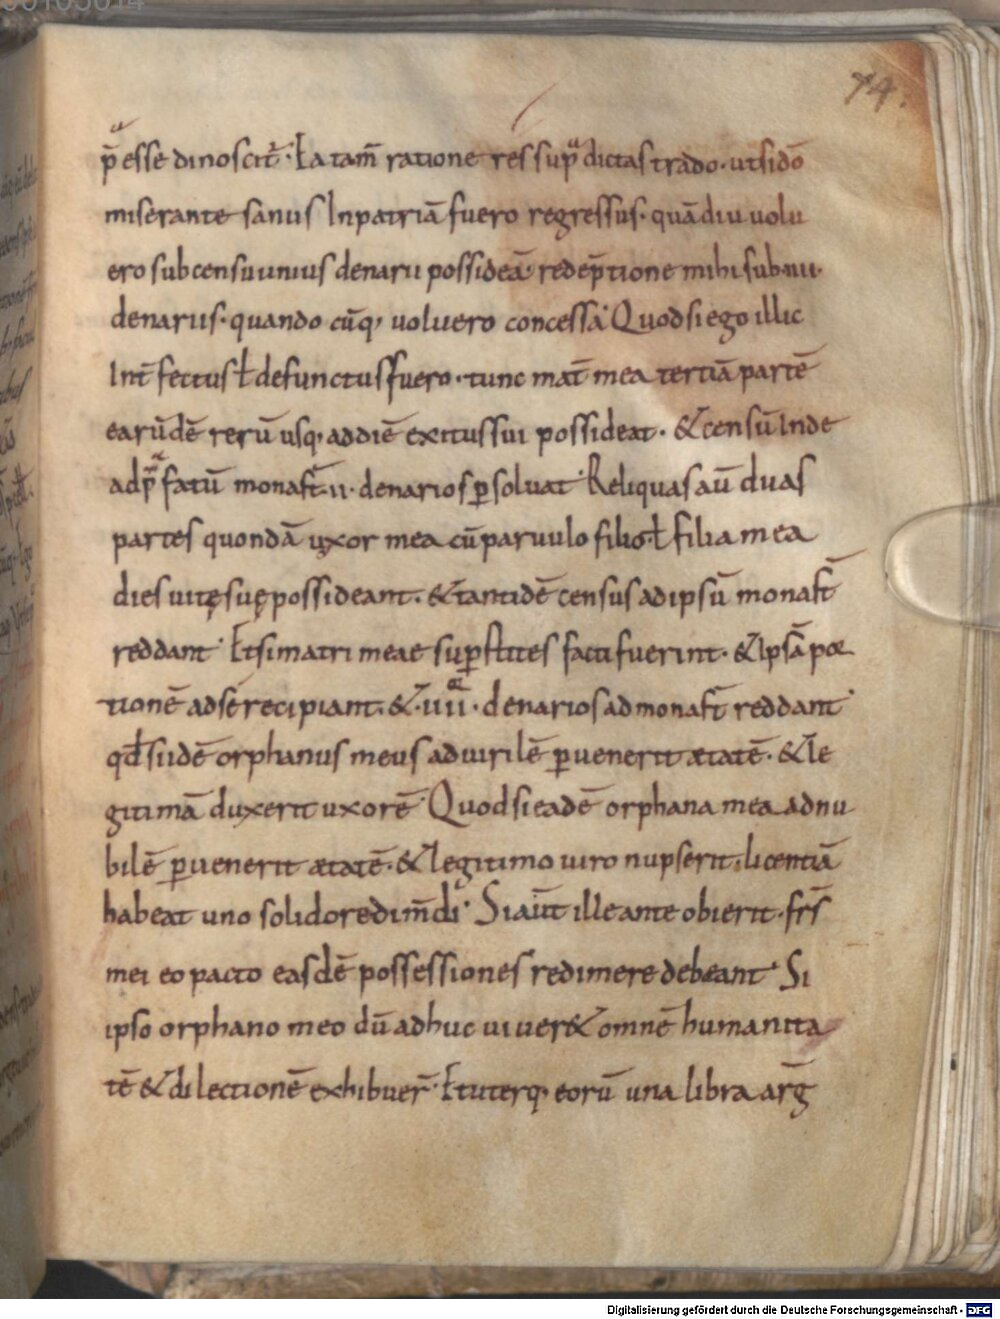 74.
p̄esse dinoscit̄· Ea tam̄ ratione res sup̄dictas trado· ut si dō
miserante sanus In patriā fuero regressus· quādiu uolu
ero sub censu unius denarii possideā· redēptione mihi sub· iiii·
denariis· quando cūq, uoluero concessa· Quod si ego illic
Int̄fectus ł defunctus fuero· tunc mat̄ mea tertiā partē
earūdē rerū usq, ad diē exitus sui possideat· & censū Inde
ad p̄fatū monast̄· ii· denarios ꝑsoluat· Reliquas aū duas
partes quondā uxor mea cū paruulo filio ł filia mea
dies uitę suę possideant· & tantidē census ad ipsū monast̄
reddant· Et si matri meae suꝑstites facti fuerint· & Ipsā por
tionē ad se recipiant· & · iiii · denarios ad monast̄ reddant·
qđ si idē orphanus meus ad uirilē ꝑuenerit ætatē· & le
gitimā duxerit uxorē· Quod si eadē orphana mea ad nu
bilē ꝑuenerit ætatē· & legitimo uiro nupserit· licentiā
habeat uno solido redim̄di· Si aūt ille ante obierit· frs̄
mei eo pacto easdē possessiones redimere debeant· Si
ipso orphano meo dū adhuc uiuer& omnē humanita
tē & dilectionē exhibuer̄· Et uterq, eorū una libra arḡ
Digitalisierung gefördert durch die Deutsche Forschungsgemeinschaft - DFG